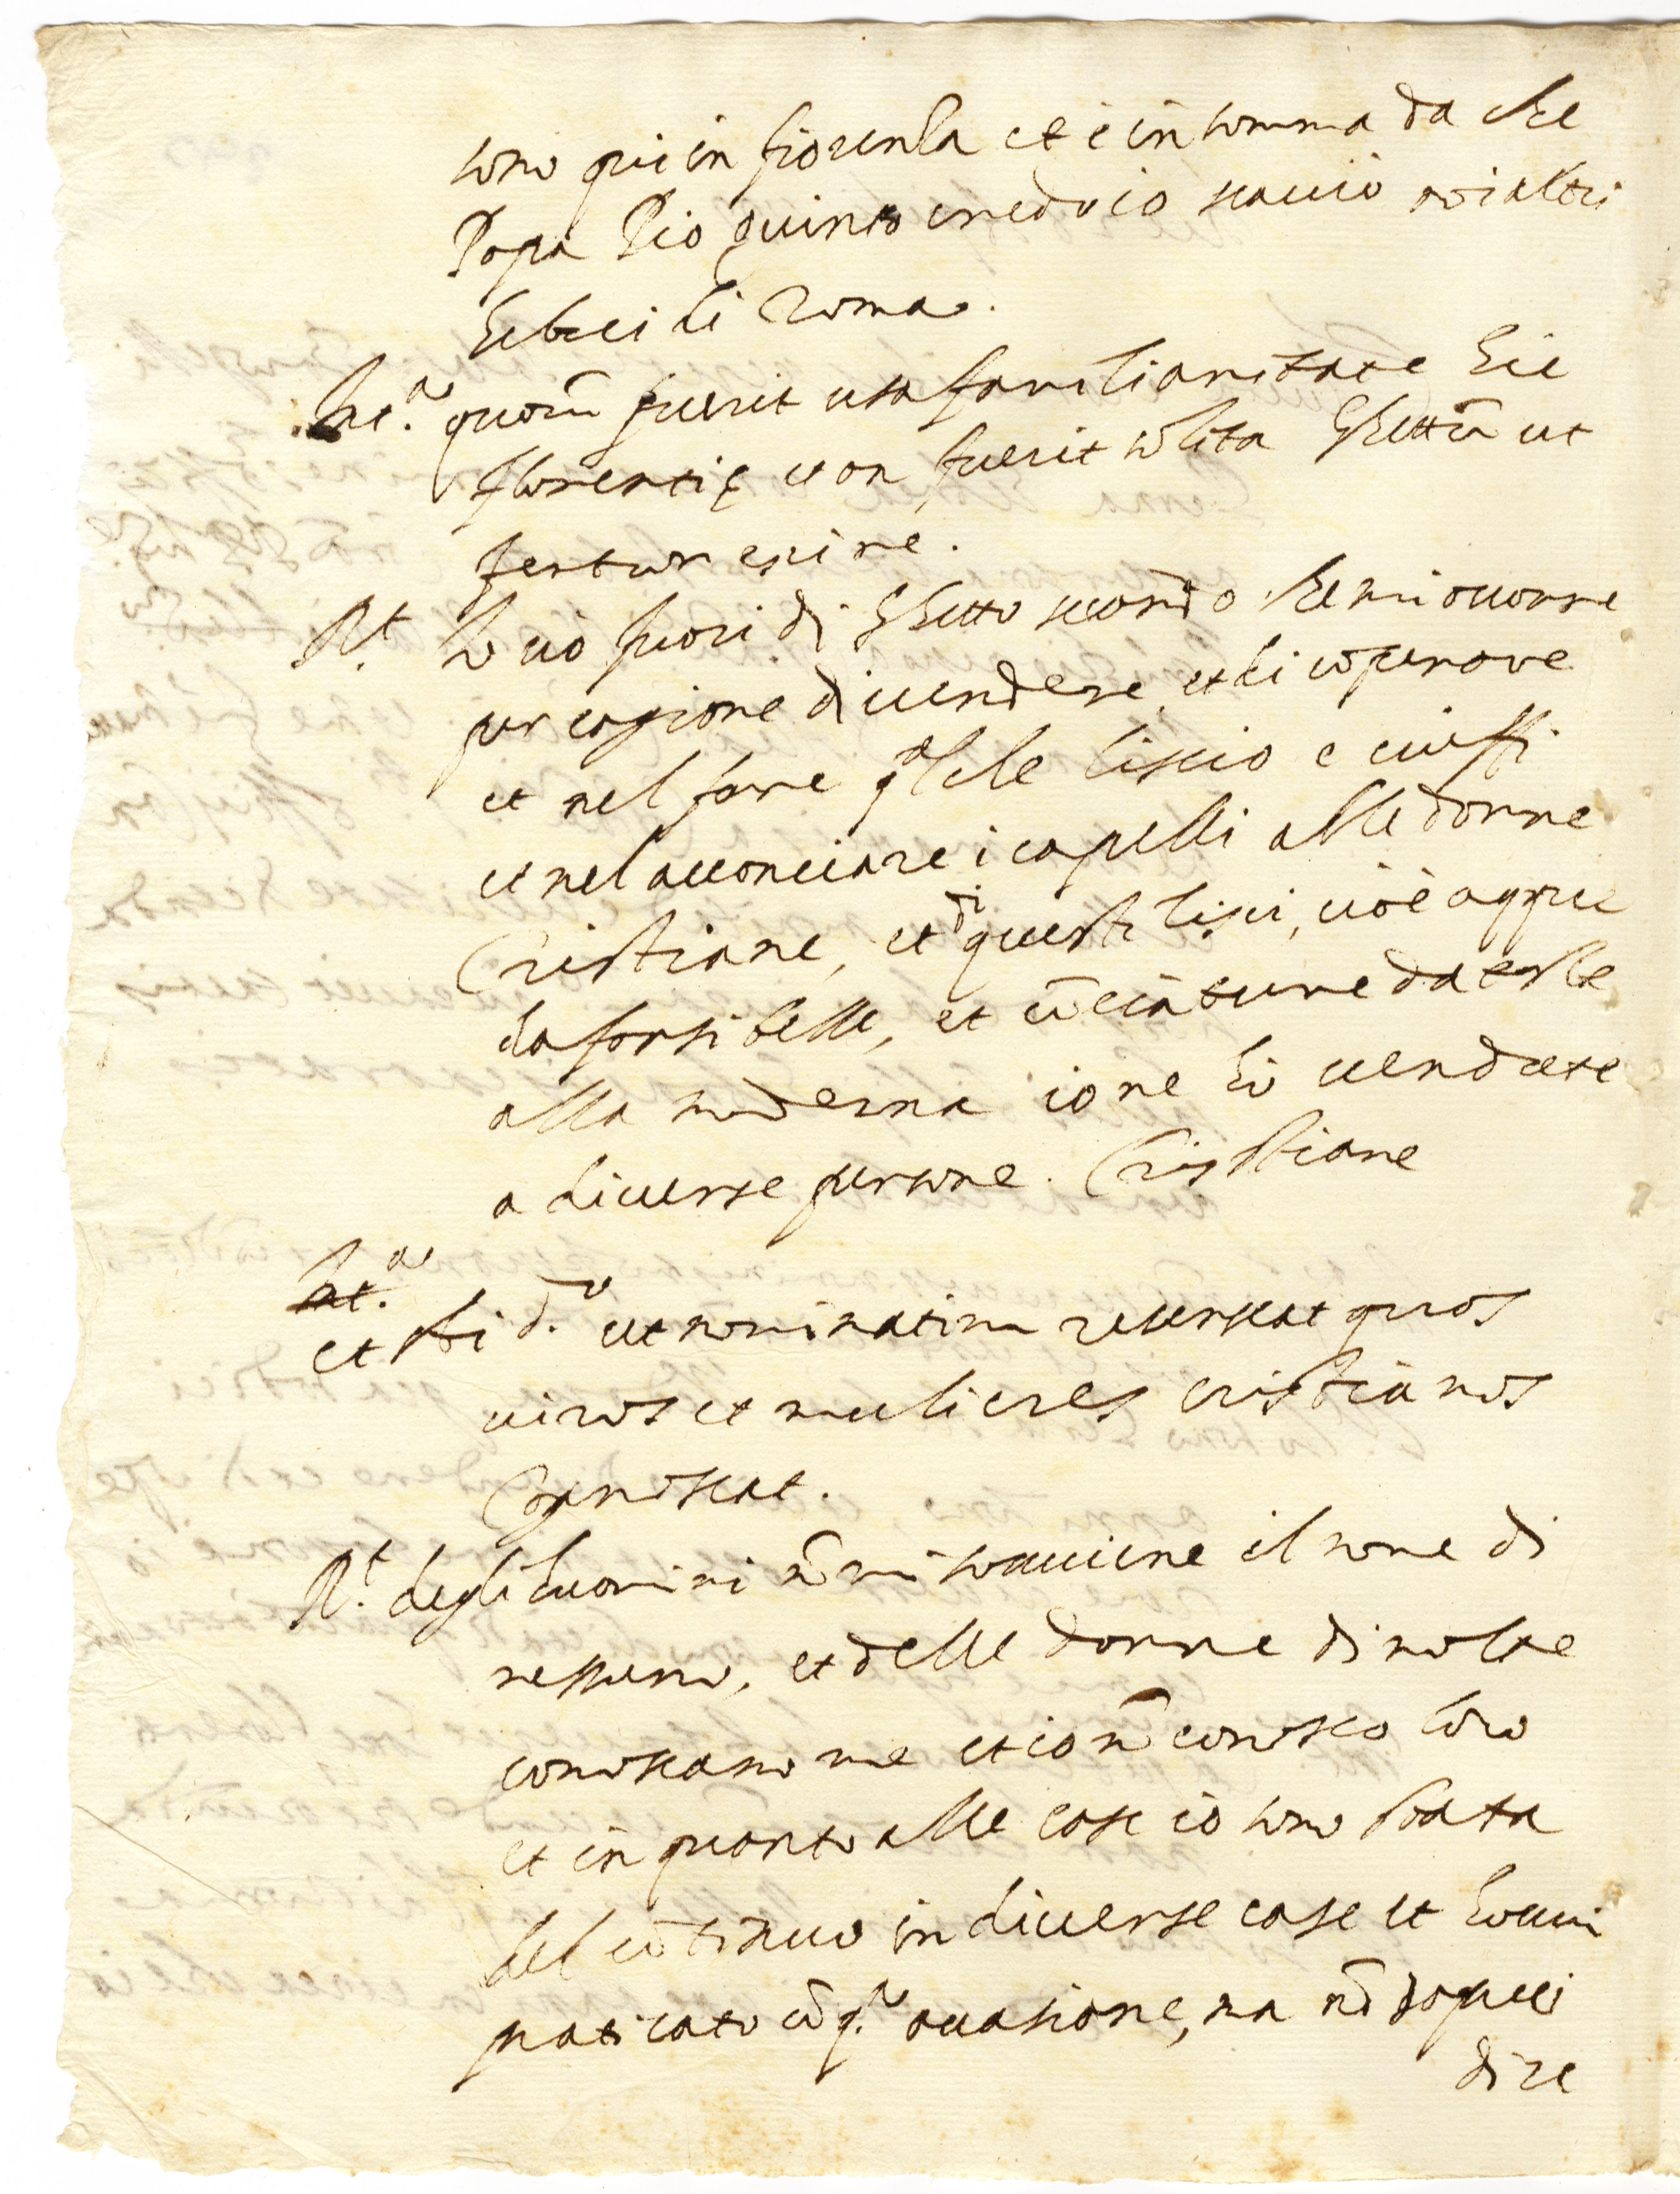 sono qui in fiorenza et è in somma da che
Papa Pio quinto credo io scacciò noi altri
Hebrei di Roma.
Int.a quorum fuerit usa familiaritate hic
florentię et an fuerit solita Ghettū ut
fertur exire.
R.t Io vò fuori di Ghetto secondo che mi occorre
per cagione di vendere, et di coperare
et nel fare q.lche liscio e ciuffi
et nel acconciare i capelli alle donne
Cristiane, et di questi lisci, cioè acque
da farsi belle, et cōciature da teste
alla moderna io ne hò vendute
a diverse persone. Cristiane
Int.a
et sibi d.o ut nominatim recenseat quos
viros et mulieres cristianos
Cognoscat.
R.t degli huomini nō mi sovviene il nome di
nessuno, et delle donne di molte
conoscano me et io nō conosco loro
et in quanto alle case io sono stata
del cōtinuo in diverse case et hovvi
praticato cō q.a occasione, ma nō saprei
dire